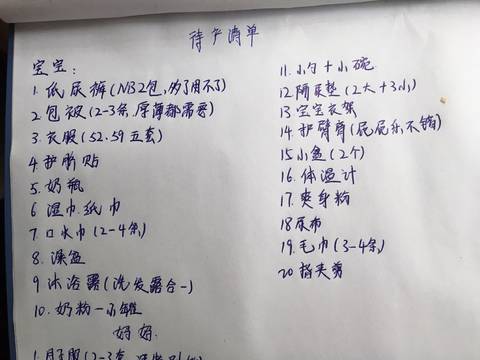 待产清单
宝宝:
1. 纸尿裤(NB2包,多了用不了)
2. 包被(2-3条,厚薄都需要)
3. 衣服(52.59五套)
4. 护脐贴
5. 奶瓶
6. 湿巾.纸巾
7. 口水巾(2-4条)
8. 澡盆
9 沐浴露(洗发露合一)
10. 奶粉一小罐
11. 小勺+小碗
12 隔尿垫(2大+3小)
13 宝宝衣架
14 护臀膏(屁屁乐不错)
15 小盆(2个)
16. 体温计
17. 爽身粉
18 尿布
19. 毛巾(3-4条)
20 指夹剪
妈妈:
1. 月子服(2-3套